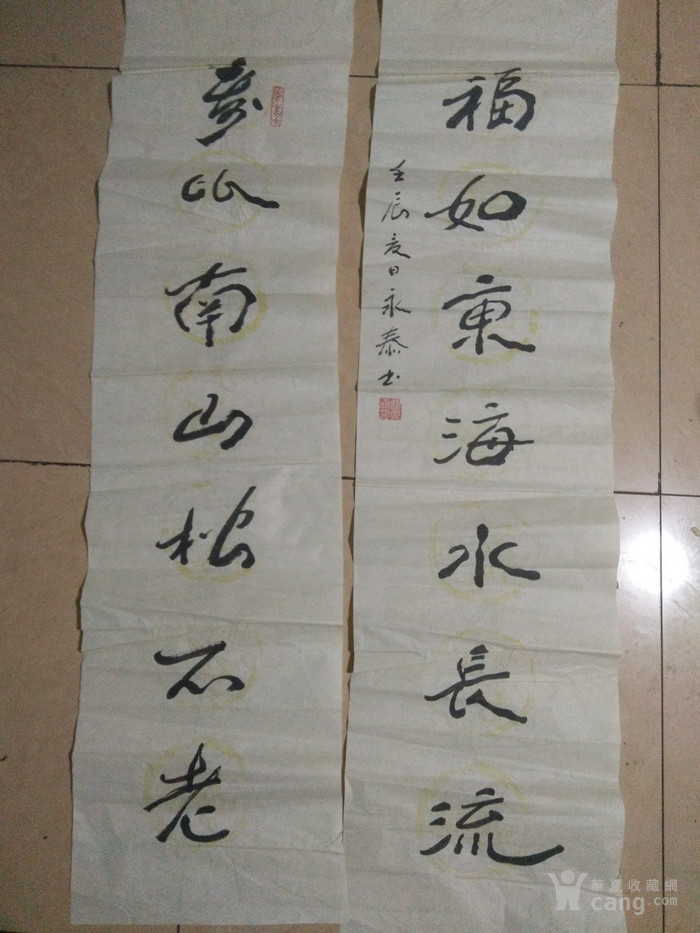 福如東海水長流
壬辰夏日永泰书
寿比南山松不老
華夏收藏網
cang.com